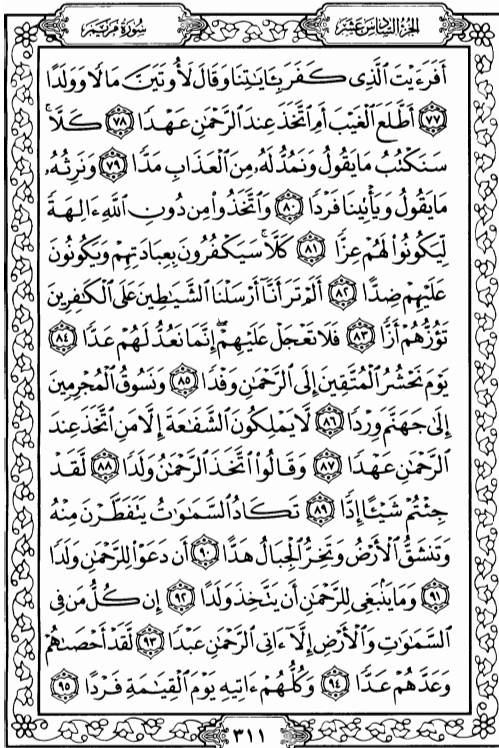 الجزء السادس عشر
سورة مريم
أَفَرَءَيْتَ ٱلَّذِى كَفَرَ بِـَٔايَٰتِنَا وَقَالَ لَأُوتَيَنَّ مَالًا وَوَلَدًا
٧٧ أَطَّلَعَ ٱلْغَيْبَ أَمِ ٱتَّخَذَ عِندَ ٱلرَّحْمَٰنِ عَهْدًا ٧٨ كَلَّا ۚ
سَنَكْتُبُ مَا يَقُولُ وَنَمُدُّ لَهُۥ مِنَ ٱلْعَذَابِ مَدًّا ٧٩ وَنَرِثُهُۥ
مَا يَقُولُ وَيَأْتِينَا فَرْدًا ٨٠ وَٱتَّخَذُوا۟ مِن دُونِ ٱللَّهِ ءَالِهَةً
لِّيَكُونُوا۟ لَهُمْ عِزًّا ٨١ كَلَّا ۚ سَيَكْفُرُونَ بِعِبَادَتِهِمْ وَيَكُونُونَ
عَلَيْهِمْ ضِدًّا ٨٢ أَلَمْ تَرَ أَنَّآ أَرْسَلْنَا ٱلشَّيَٰطِينَ عَلَى ٱلْكَٰفِرِينَ
تَؤُزُّهُمْ أَزًّا ٨٣ فَلَا تَعْجَلْ عَلَيْهِمْ ۖ إِنَّمَا نَعُدُّ لَهُمْ عَدًّا ٨٤
يَوْمَ نَحْشُرُ ٱلْمُتَّقِينَ إِلَى ٱلرَّحْمَٰنِ وَفْدًا ٨٥ وَنَسُوقُ ٱلْمُجْرِمِينَ
إِلَىٰ جَهَنَّمَ وِرْدًا ٨٦ لَّا يَمْلِكُونَ ٱلشَّفَٰعَةَ إِلَّا مَنِ ٱتَّخَذَ عِندَ
ٱلرَّحْمَٰنِ عَهْدًا ٨٧ وَقَالُوا۟ ٱتَّخَذَ ٱلرَّحْمَٰنُ وَلَدًا ٨٨ لَّقَدْ
جِئْتُمْ شَيْـًٔا إِدًّا ٨٩ تَكَادُ ٱلسَّمَٰوَٰتُ يَتَفَطَّرْنَ مِنْهُ
وَتَنشَقُّ ٱلْأَرْضُ وَتَخِرُّ ٱلْجِبَالُ هَدًّا ٩٠ أَن دَعَوْا۟ لِلرَّحْمَٰنِ وَلَدًا
٩١ وَمَا يَنۢبَغِى لِلرَّحْمَٰنِ أَن يَتَّخِذَ وَلَدًا ٩٢ إِن كُلُّ مَن فِى
ٱلسَّمَٰوَٰتِ وَٱلْأَرْضِ إِلَّآ ءَاتِى ٱلرَّحْمَٰنِ عَبْدًا ٩٣ لَّقَدْ أَحْصَىٰهُمْ
وَعَدَّهُمْ عَدًّا ٩٤ وَكُلُّهُمْ ءَاتِيهِ يَوْمَ ٱلْقِيَٰمَةِ فَرْدًا ٩٥
٣١١